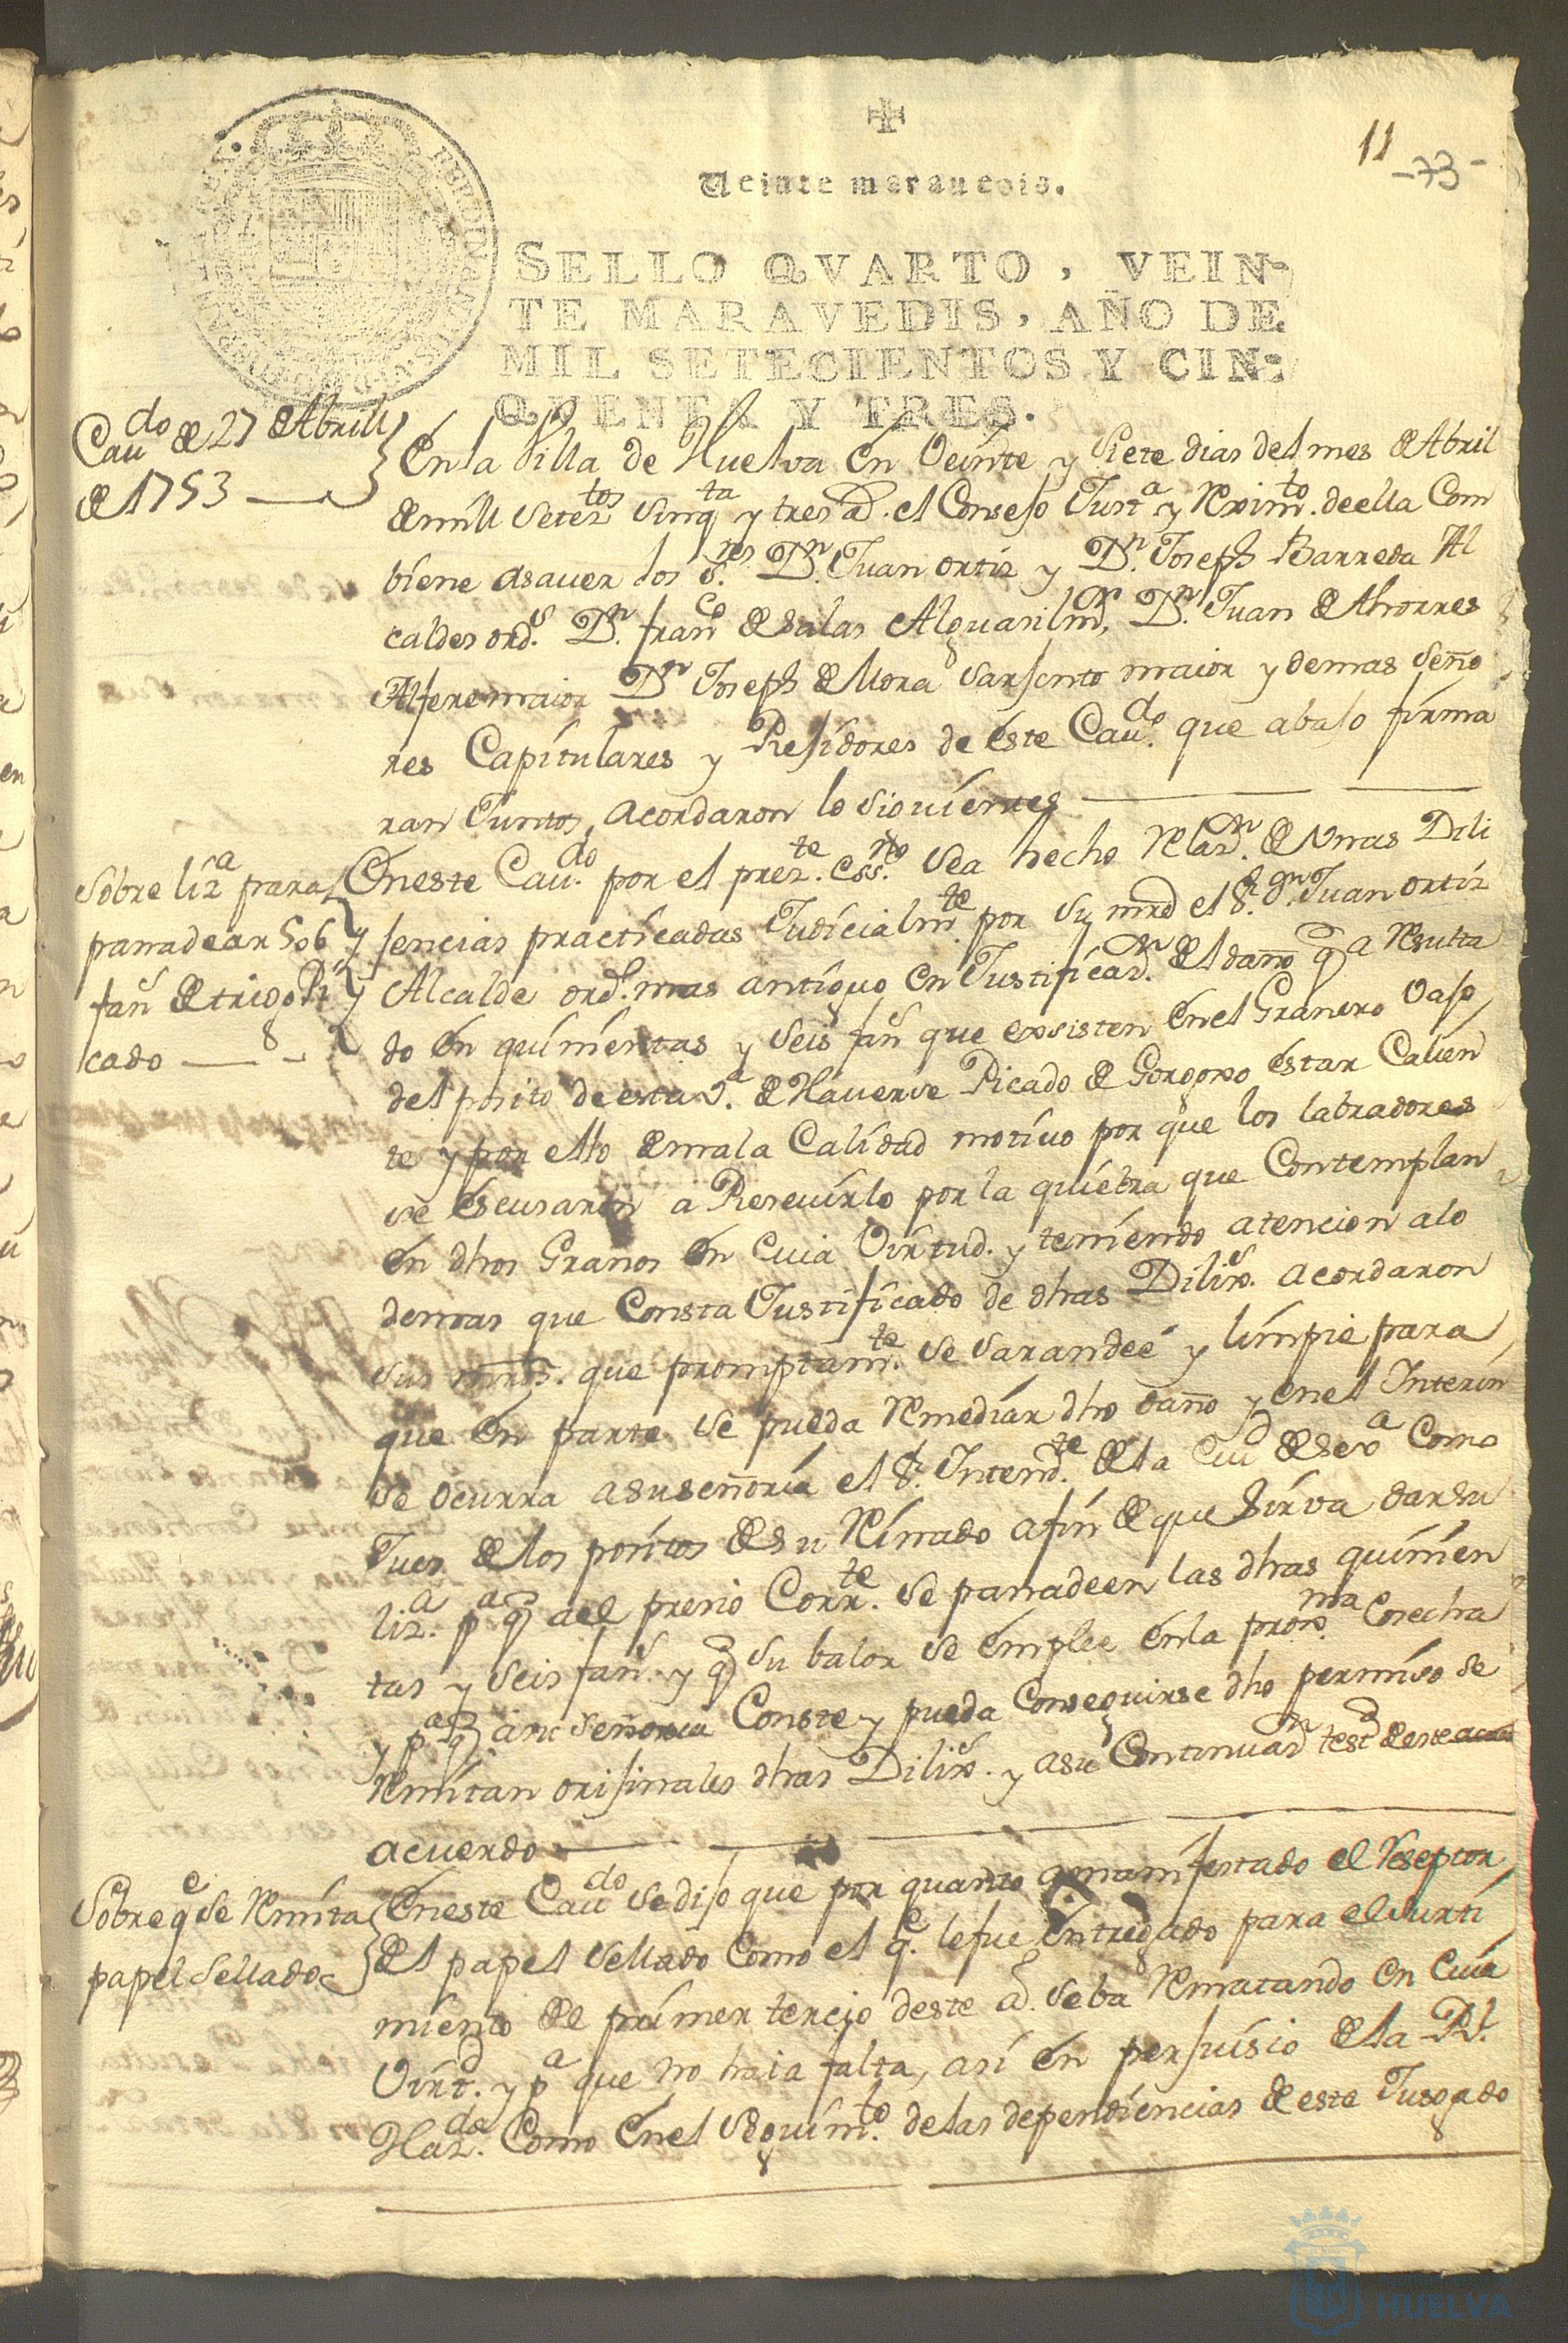 11
-73-
Veinte maravedis.
SELLO QVARTO, VEIN-
TE MARAVEDIS, AÑO DE
MIL SETECIENTOS Y CIN-
QUENTA Y TRES.
Cau.do de 27 de Abrill
de 1753
En la Villa de Huelva en Veinte y Siete dias del mes de Abril
de mill Setez.tos Sinq.ta y tres a.s el Consejo Just.a y Reximi.to de ella Com
biene asauer los S.res D.n Juan ortiz y D.n Joseph Barreda Al
caldes ord.s D.n fran.co de Salas Alguasil m.or, D.n Juan de Thorres
Alferes maior D.n Joseph de Mora Sarjento maior y demas Seño
res Capitulares y Rejidores de este Cau.do que abajo firma
ran Juntos, acordaron lo Siguientes
Sobre liz.a para
panadear 506
fan.s de trigo Pi
cado
En este Cau.do por el prez.te ess.no Sea hecho Relaz.n de Unas Dili
jencias practicadas Judicialm.te por Su mrd el S.r D.n Juan ortiz
Alcalde ord.o mas antiguo en Justificaz.n del daño q a Resulta
do en quinientas y Seis fan.s que exsisten en el Granero vajo
del posito de esta V.a de Hauerse Picado de Gorgojo estar Calien
te y por ello de mala Calidad motiuo por que los labradores
se escusaron a Reseuirlo por la quiebra que Contemplan
en dhos Granos en Cuia Virtud. y teniendo atencion alo
demas que Consta Justificado de dhas Dilix.s acordaron
sus mrds. que promptam.te Se Sarandeé y limpie para
que en parte Se pueda Remediar dho daño y en el Interin
Se ocurra asuseñoria el S.r Intend.te de la Ciud de Sev.a Como
Jues de los positos de su Reinado afin de que Sirva dar su
liz.a p.a q al presio Corr.te Se panadeen las dhas quinien
tas y Seis fan.s y q Su balor Se emplee en la prox.ma Cosecha
y p.a q asu Señoria Conste y pueda Conseguirse dho permiso Se
Remitan orijinales dhas Dilix.s y asu Continuaz.n test.o de este
acuerdo
Sobre q.e Se Remita
papel Sellado
En este Cau.do Se dijo que por quanto a manifestado el Reseptor
del papel Sellado Como el q.e le fue entregado para el Surti
miento de primer tercio deste a.o Se ba Rematando en Cuia
Virt.d y p.a que no haia falta, así en perjuisio de la R.l
Haz.da Como en el Seguim.to de las dependiencias de este Jusgado
HUELVA